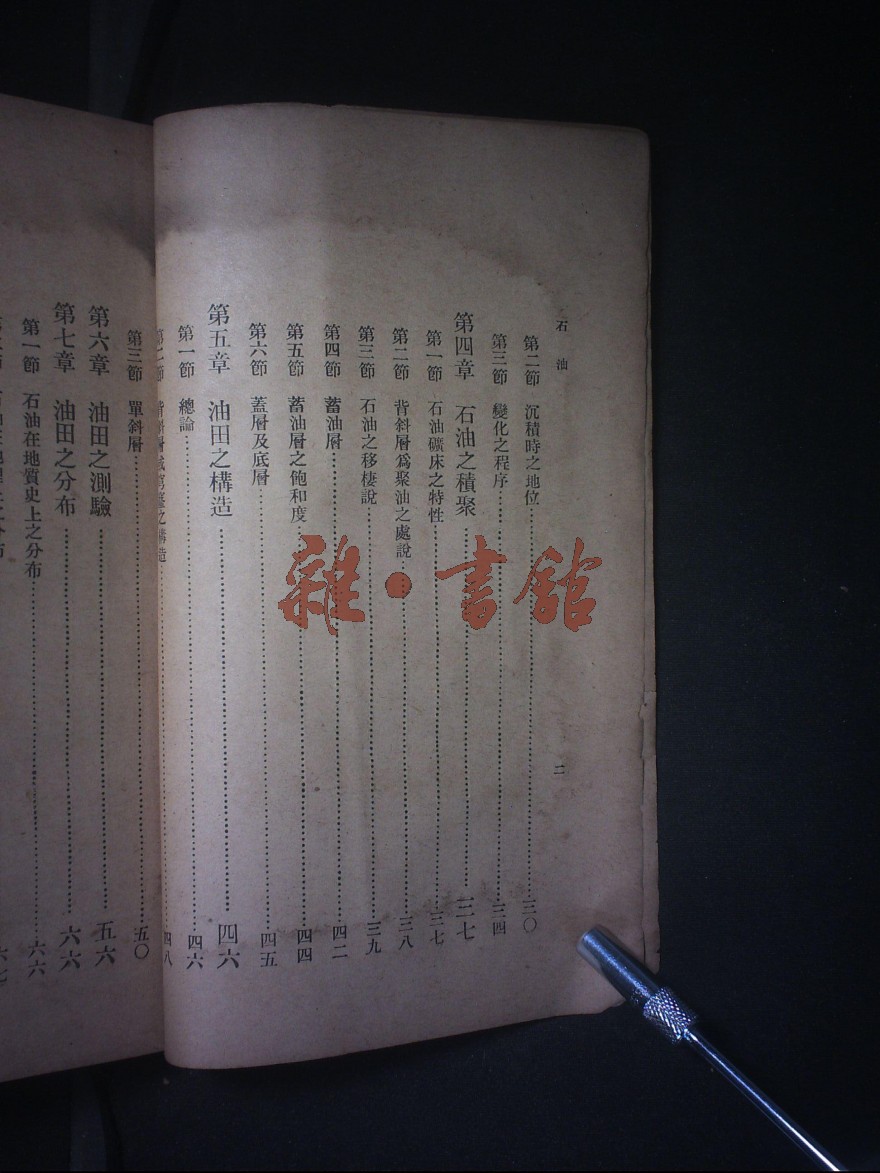 石油
二
第二節 沉積時之地位……三〇
第三節 變化之程序……三四
第四章 石油之積聚……三七
第一節 石油礦床之特性……三七
第二節 背斜層爲聚油之處說……三八
第三節 石油之移棲說……三九
第四節 蓄油層……四二
第五節 蓄油層之飽和度……四四
第六節 蓋層及底層……四五
第五章 油田之構造……四六
第一節 總論……四六
第二節 背斜層或穹窿之構造……四八
第三節 單斜層……五〇
第六章 油田之測驗……五六
第七章 油田之分布……六六
第一節 石油在地質史上之分布……六六
雜·書館